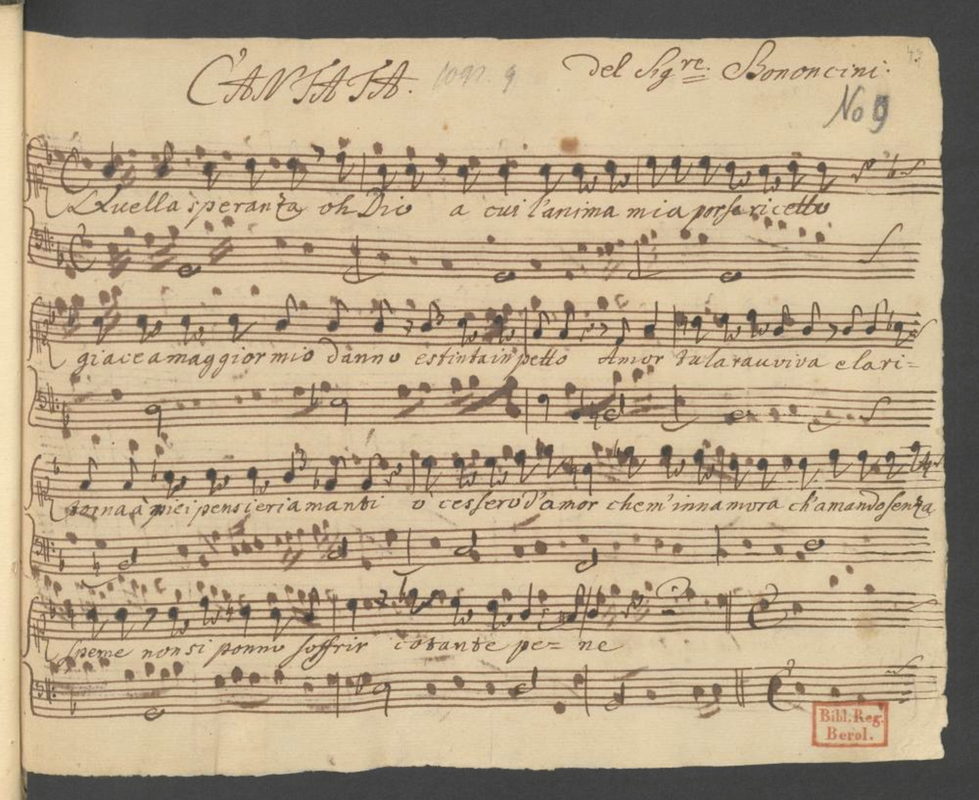 CANTATA. del Sig.re Bononcini.
No 9
Quella speranza oh Dio a cui l'anima mia porse ricetto
giace a maggior mio danno estinta in petto Amor tu la ravviva e la ri=
torna à miei pensieri amanti ò cessero d'amor che m'innamora ch'amando senza
speme non si ponno soffrir cotante pe= ne
Bibl. Reg.
Berol.